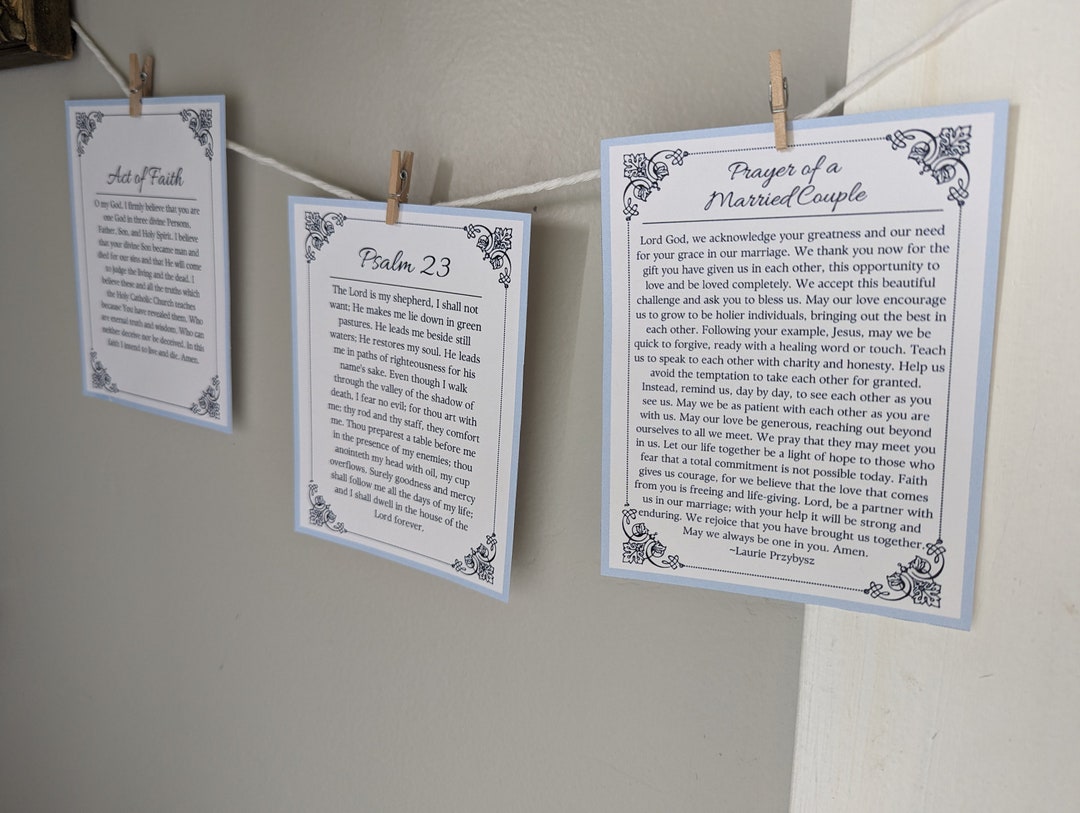 Act of Faith
O my God, I firmly believe that you are
one God in three divine Persons,
Father, Son, and Holy Spirit. I believe
that your divine Son became man and
died for our sins and that He will come
to judge the living and the dead. I
believe these and all the truths which
the Holy Catholic Church teaches
because You have revealed them, Who
are eternal truth and wisdom, Who can
neither deceive nor be deceived. In this
faith I intend to live and die. Amen.
Psalm 23
The Lord is my shepherd, I shall not
want; He makes me lie down in green
pastures. He leads me beside still
waters; He restores my soul. He leads
me in paths of righteousness for his
name's sake. Even though I walk
through the valley of the shadow of
death, I fear no evil; for thou art with
me; thy rod and thy staff, they comfort
me. Thou preparest a table before me
in the presence of my enemies; thou
anointeth my head with oil, my cup
overflows. Surely goodness and mercy
shall follow me all the days of my life;
and I shall dwell in the house of the
Lord forever.
Prayer of a
Married Couple
Lord God, we acknowledge your greatness and our need
for your grace in our marriage. We thank you now for the
gift you have given us in each other, this opportunity to
love and be loved completely. We accept this beautiful
challenge and ask you to bless us. May our love encourage
us to grow to be holier individuals, bringing out the best in
each other. Following your example, Jesus, may we be
quick to forgive, ready with a healing word or touch. Teach
us to speak to each other with charity and honesty. Help us
avoid the temptation to take each other for granted.
Instead, remind us, day by day, to see each other as you
see us. May we be as patient with each other as you are
with us. May our love be generous, reaching out beyond
ourselves to all we meet. We pray that they may meet you
in us. Let our life together be a light of hope to those who
fear that a total commitment is not possible today. Faith
gives us courage, for we believe that the love that comes
from you is freeing and life-giving. Lord, be a partner with
us in our marriage; with your help it will be strong and
enduring. We rejoice that you have brought us together.
May we always be one in you. Amen.
~Laurie Przybysz